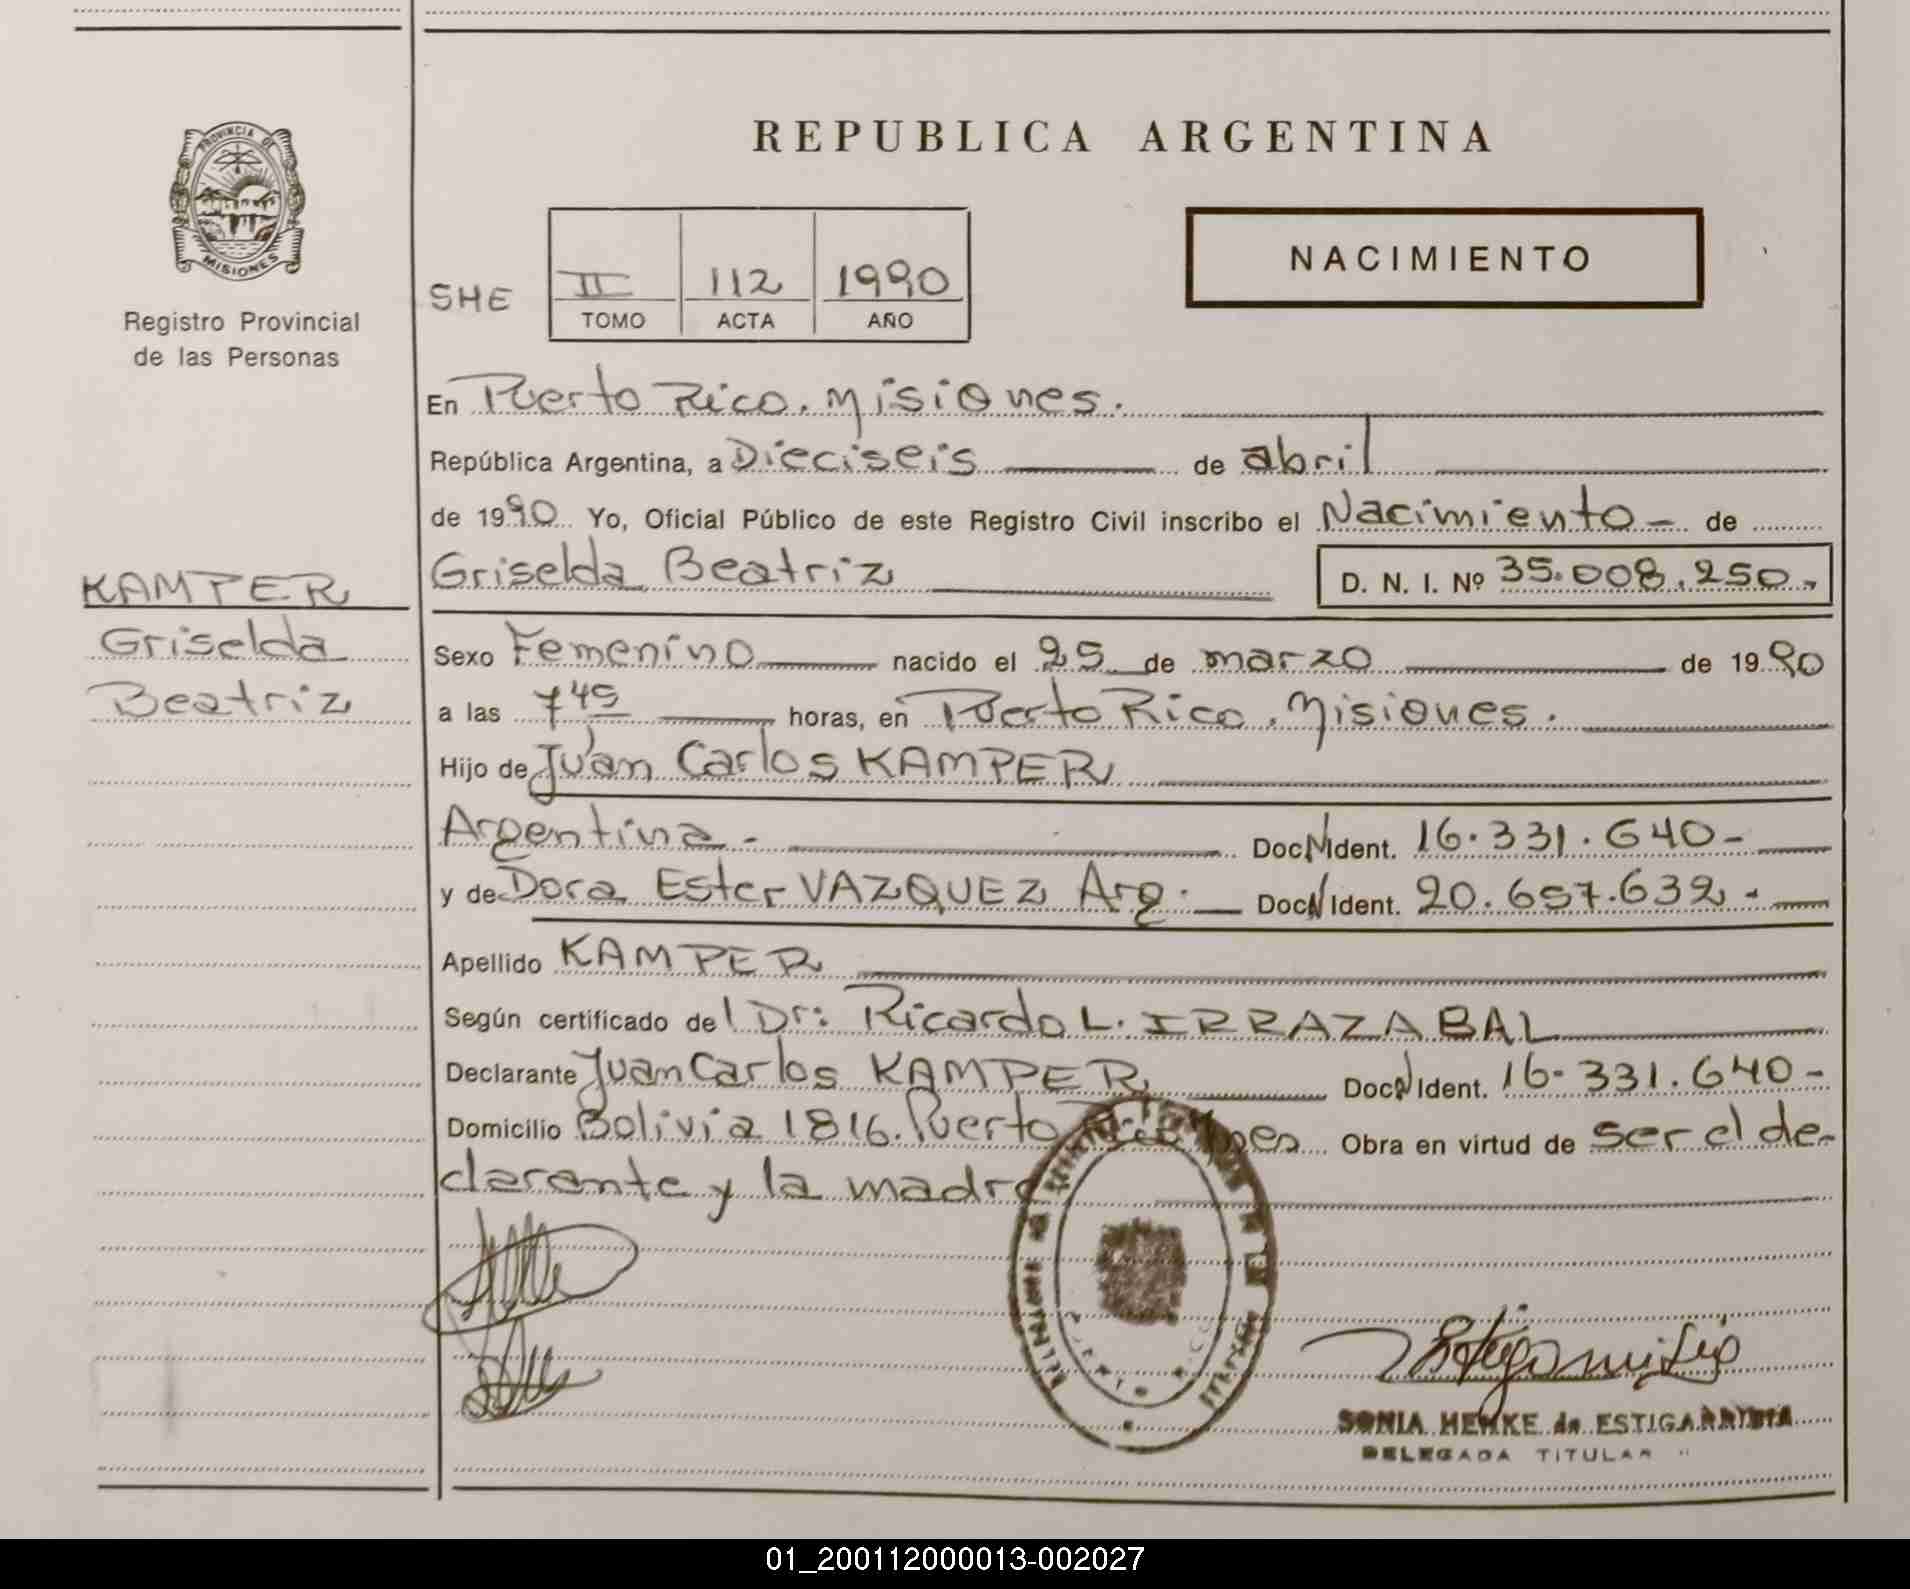 PROVINCIA DE
MISIONES
Registro Provincial
de las Personas
REPUBLICA ARGENTINA
NACIMIENTO
SHE
II 112 1990
TOMO ACTA AÑO
En Puerto Rico. Misiones.
República Argentina, a Dieciseis de abril
de 1990 Yo, Oficial Público de este Registro Civil inscribo el Nacimiento - de
Griselda Beatriz D. N. I. Nº 35.008.250.-
KAMPER
Griselda
Beatriz
Sexo Femenino nacido el 25 de marzo de 1990
a las 7 45 horas, en Puerto Rico. Misiones.
Hijo de Juan Carlos KAMPER
Argentina.- Doc. Ident. 16.331.640-
y de Dora Ester VAZQUEZ Arg. Doc. Ident. 20.657.632.-
Apellido KAMPER
Según certificado del Dr: Ricardo L. IRRAZABAL
Declarante Juan Carlos KAMPER Doc. Ident. 16.331.640-
Domicilio Bolivia 1816. Puerto Obra en virtud de ser el de-
clarante y la madre
SONIA HENKE de ESTIGARRIBIA
DELEGADA TITULAR
01_200112000013-002027